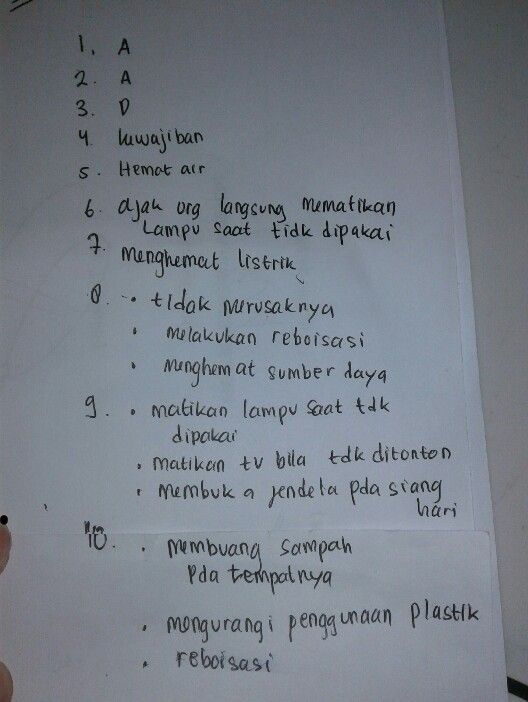 1. A
2. A
3. D
4. kewajiban
5. Hemat air
6. ajak org langsung mematikan
lampu saat tidk dipakai
7. Menghemat listrik
8. • tidak merusaknya
• Melakukan reboisasi
• Menghemat sumber daya
9. • matikan lampu saat tdk
dipakai
• matikan tv bila tdk ditonton
• membuka jendela pda siang
hari
10. • membuang sampah
pda tempatnya
• mengurangi penggunaan plastik
• reboisasi